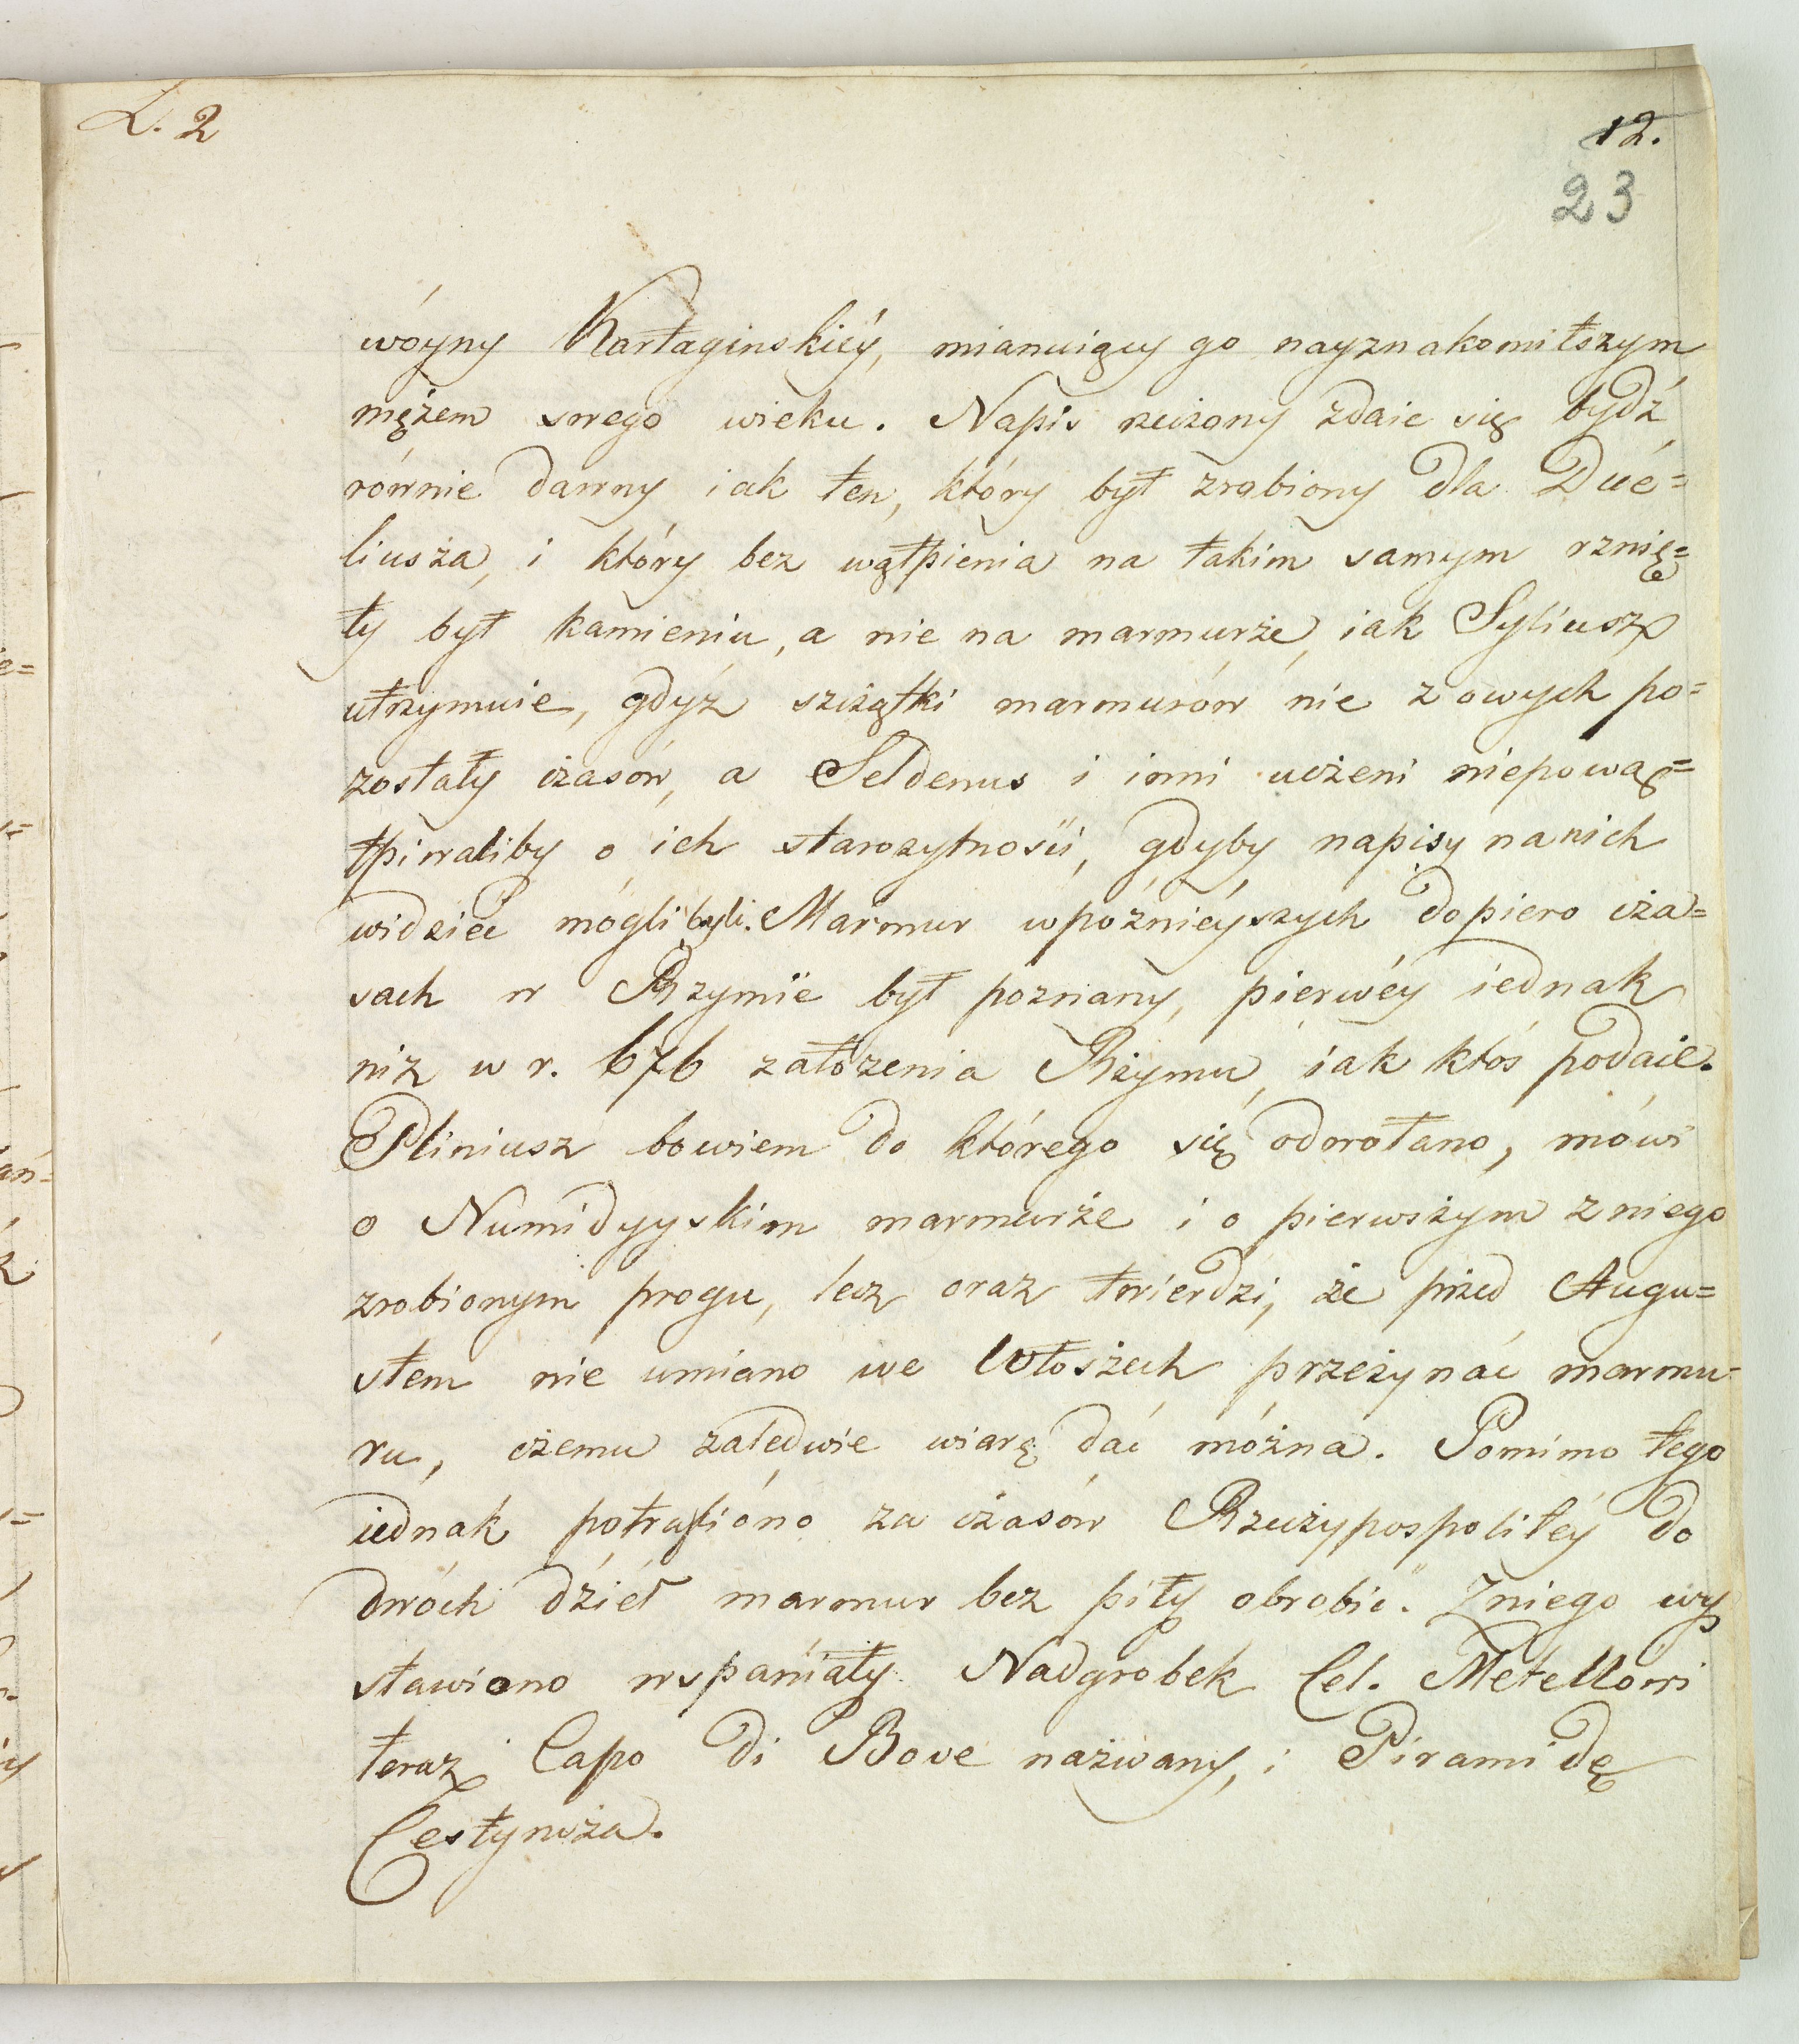 L. 2
12.
23
wóyny Kartaginskiéy, mianuiący go nayznakomitszym
mężem swego wieku. Napis rzeczony zdaie się bydź
równie dawny iak ten, który był zrobiony dla Due=
liusza, i który bez wątpienia na takim samym rznię=
ty był kamieniu, a nie na marmurze, iak Syliusz
utrzymuie, gdyż szczątki marmurów nie z owych po=
zostały czasów, a Seldenus i inni uczeni niepową=
tpiwaliby o ich starożytności, gdyby napisy na nich
widzieć mógli byli. Marmur w późniéyszych dopiero cza=
sach w Rzymie był poznany, pierwéy iednak
niż w r. 676 założenia Rzymu, iak ktoś podaie.
Pliniusz bowiem do którego się odwołano, mówi
o Numidyyskim marmurze i o pierwszym z niego
zrobionym progu, lecz oraz twierdzi, że przed Augu=
stem nie umiano we Włoszech przerzynać marmu-
ru, czemu zaledwie wiarę dać można. Pomimo tego
iednak potrafióno za czasów Rzeczypospolitéy do
dwóch dzieł marmur bez piły obrobić. Z niego wy
stawiono wspaniały Nadgrobek Cel. Metellowi
teraz Capo di Bove nazwany, i Piramidę
Cestyusza.